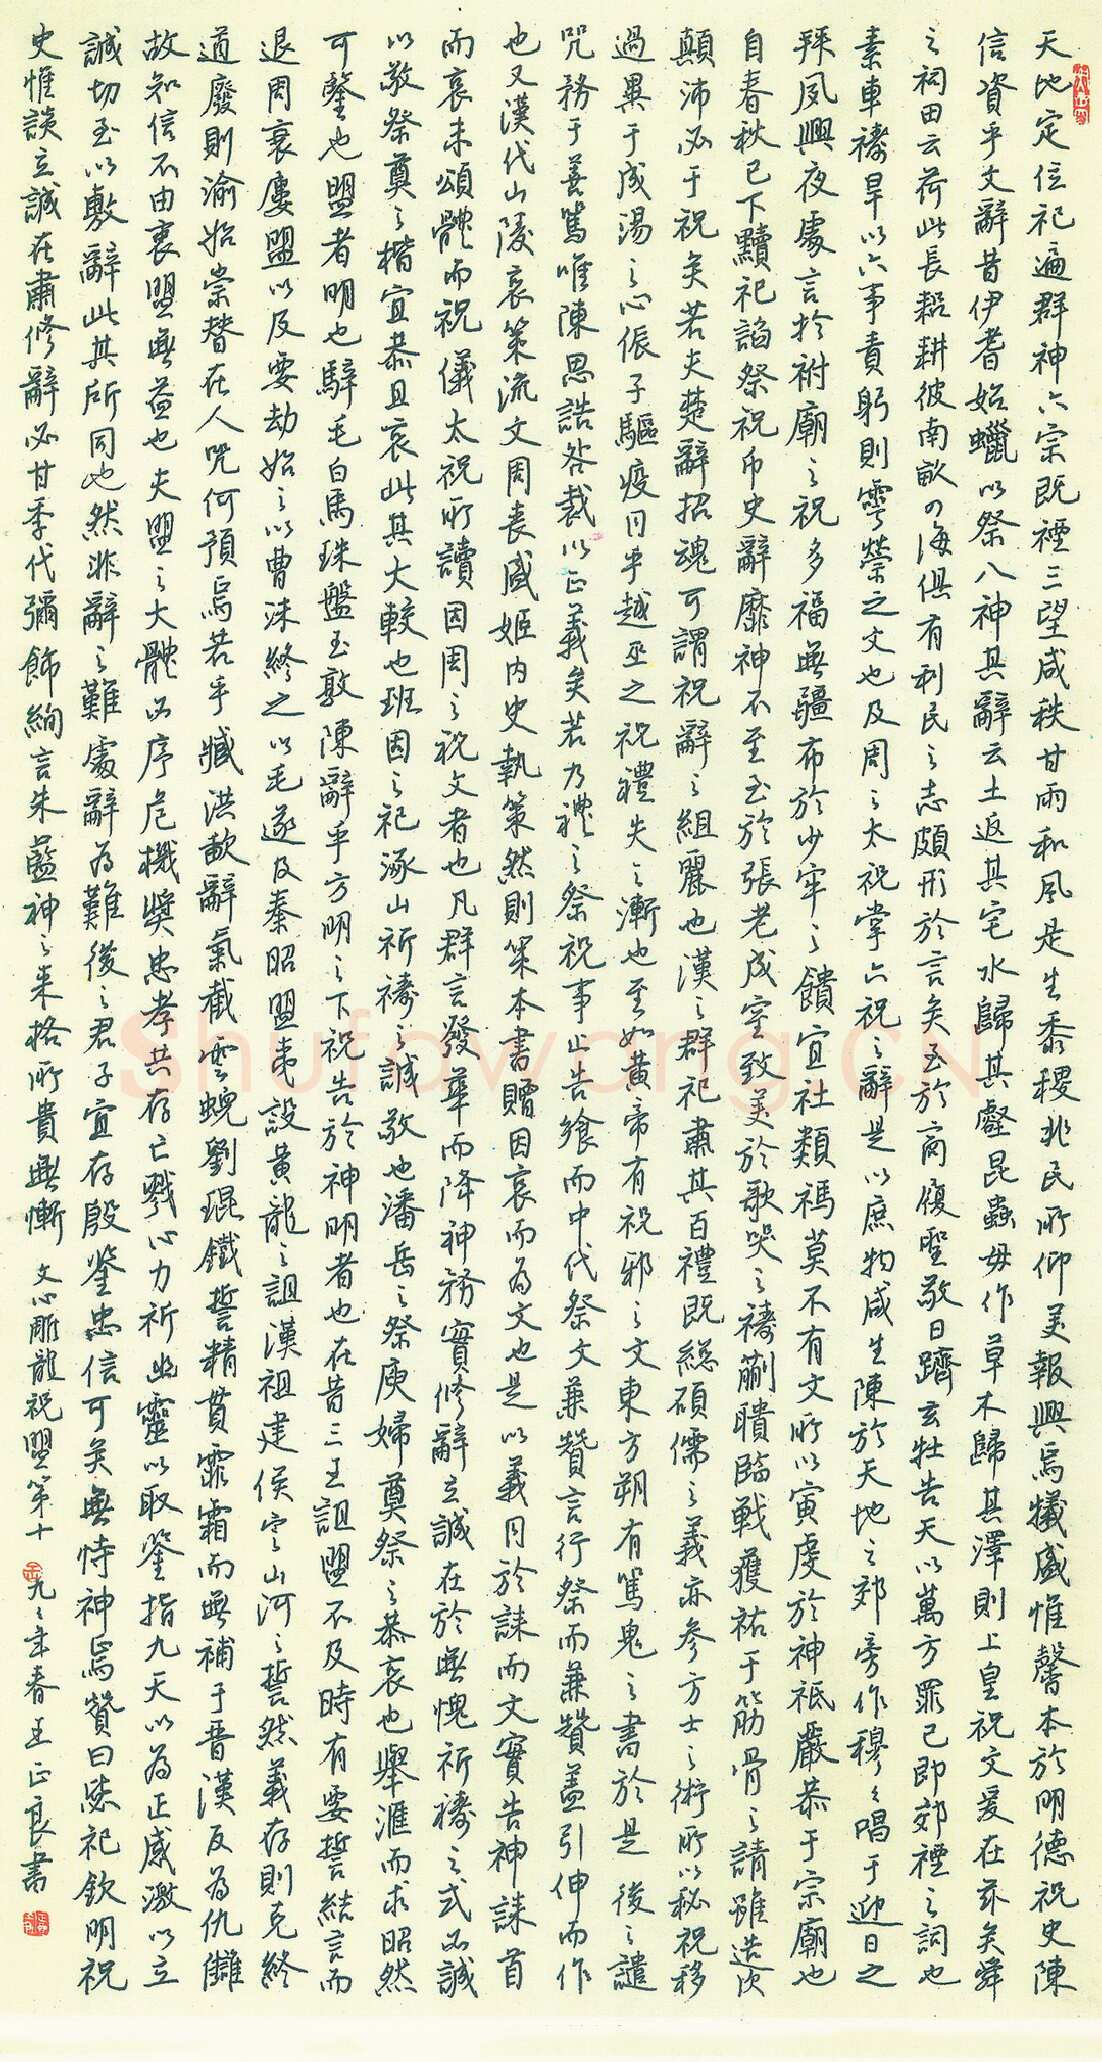 天地定位祀遍群神六宗既禋三望咸秩甘雨和風是生黍稷兆民所仰美報興焉犧盛惟馨本於明德祝史陳
信資乎文辭昔伊耆始蠟以祭八神其辭云土返其宅水歸其壑昆蟲毋作草木歸其澤則上皇祝文爰在茲矣舜
之祠田云荷此長耜耕彼南畝四海俱有利民之志頗形於言矣至於商履聖敬日躋玄牡告天以萬方罪己即郊禋之詞也
素車禱旱以六事責躬則雩禜之文也及周之太祝掌六祝之辭是以庶物咸生陳於天地之郊旁作穆々唱于迎日之
拜夙興夜處言於祔廟之祝多福無疆布於少牢之饋宜社類禡莫不有文所以寅虔於神祇嚴恭于宗廟也
自春秋已下黷祀諂祭祝币史辭靡神不至至於張老成室致美於歌哭之禱蒯聵臨戰獲祐于筋骨之請雖造次
顛沛必于祝矣若夫楚辭招魂可謂祝辭之組麗也漢之群祀肅其百禮既總碩儒之義亦參方士之術所以秘祝移
過異于成湯之心侲子驅疫同乎越巫之祝禮失之漸也至如黃帝有祝邪之文東方朔有罵鬼之書於是後之譴
咒務于善罵唯陳思誥咎裁以正義矣若乃禮之祭祝事止告飨而中代祭文兼贊言行祭而兼贊蓋引伸而作
也又漢代山陵哀策流文周喪盛姬內史執策然則策本書贈因哀而為文也是以義同於誄而文實告神誄首
而哀末頌體而祝儀太祝所讀因周之祝文者也凡群言發華而降神務實修辭立誠在於無愧祈禱之式必誠
以敬祭奠之楷宜恭且哀此其大較也班因之祀涿山祈禱之誠敬也潘岳之祭庾婦奠祭之恭哀也舉滙而求昭然
可鑒也盟者明也騂毛白馬珠盤玉敦陳辭乎方明之下祝告於神明者也在昔三王詛盟不及時有要誓結言而
退周衰屢盟以及要劫始之以曹沫終之以毛遂及秦昭盟夷設黃龍之詛漢祖建侯定山河之誓然義存則克終
道廢則渝始崇替在人咒何預焉若乎臧洪歃辭氣截雲蜺劉琨鐵誓精貫霏霜而無補于晋漢反為仇讎
故知信不由衷盟無益也夫盟之大體必序危機獎忠孝共存亡戮心力祈幽靈以取鑒指九天以為正感激以立
誠切至以敷辭此其所同也然非辭之難處辭為難後之君子宜存殷鑒忠信可矣無恃神焉贊曰毖祀欽明祝
史惟談立誠在肅修辭必甘季代彌飾絢言朱藍神之來格所貴無慚 文心雕龍祝盟第十 九九年春王正良書
Shufawang.CN